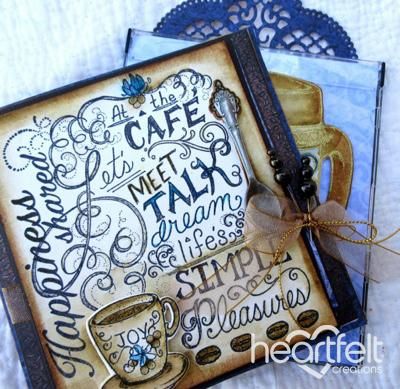 At the
CAFÉ
Let's
MEET
TALK
dream
life's
SIMPLE
Pleasures
Happiness
shared
JOY
heartfelt
creations